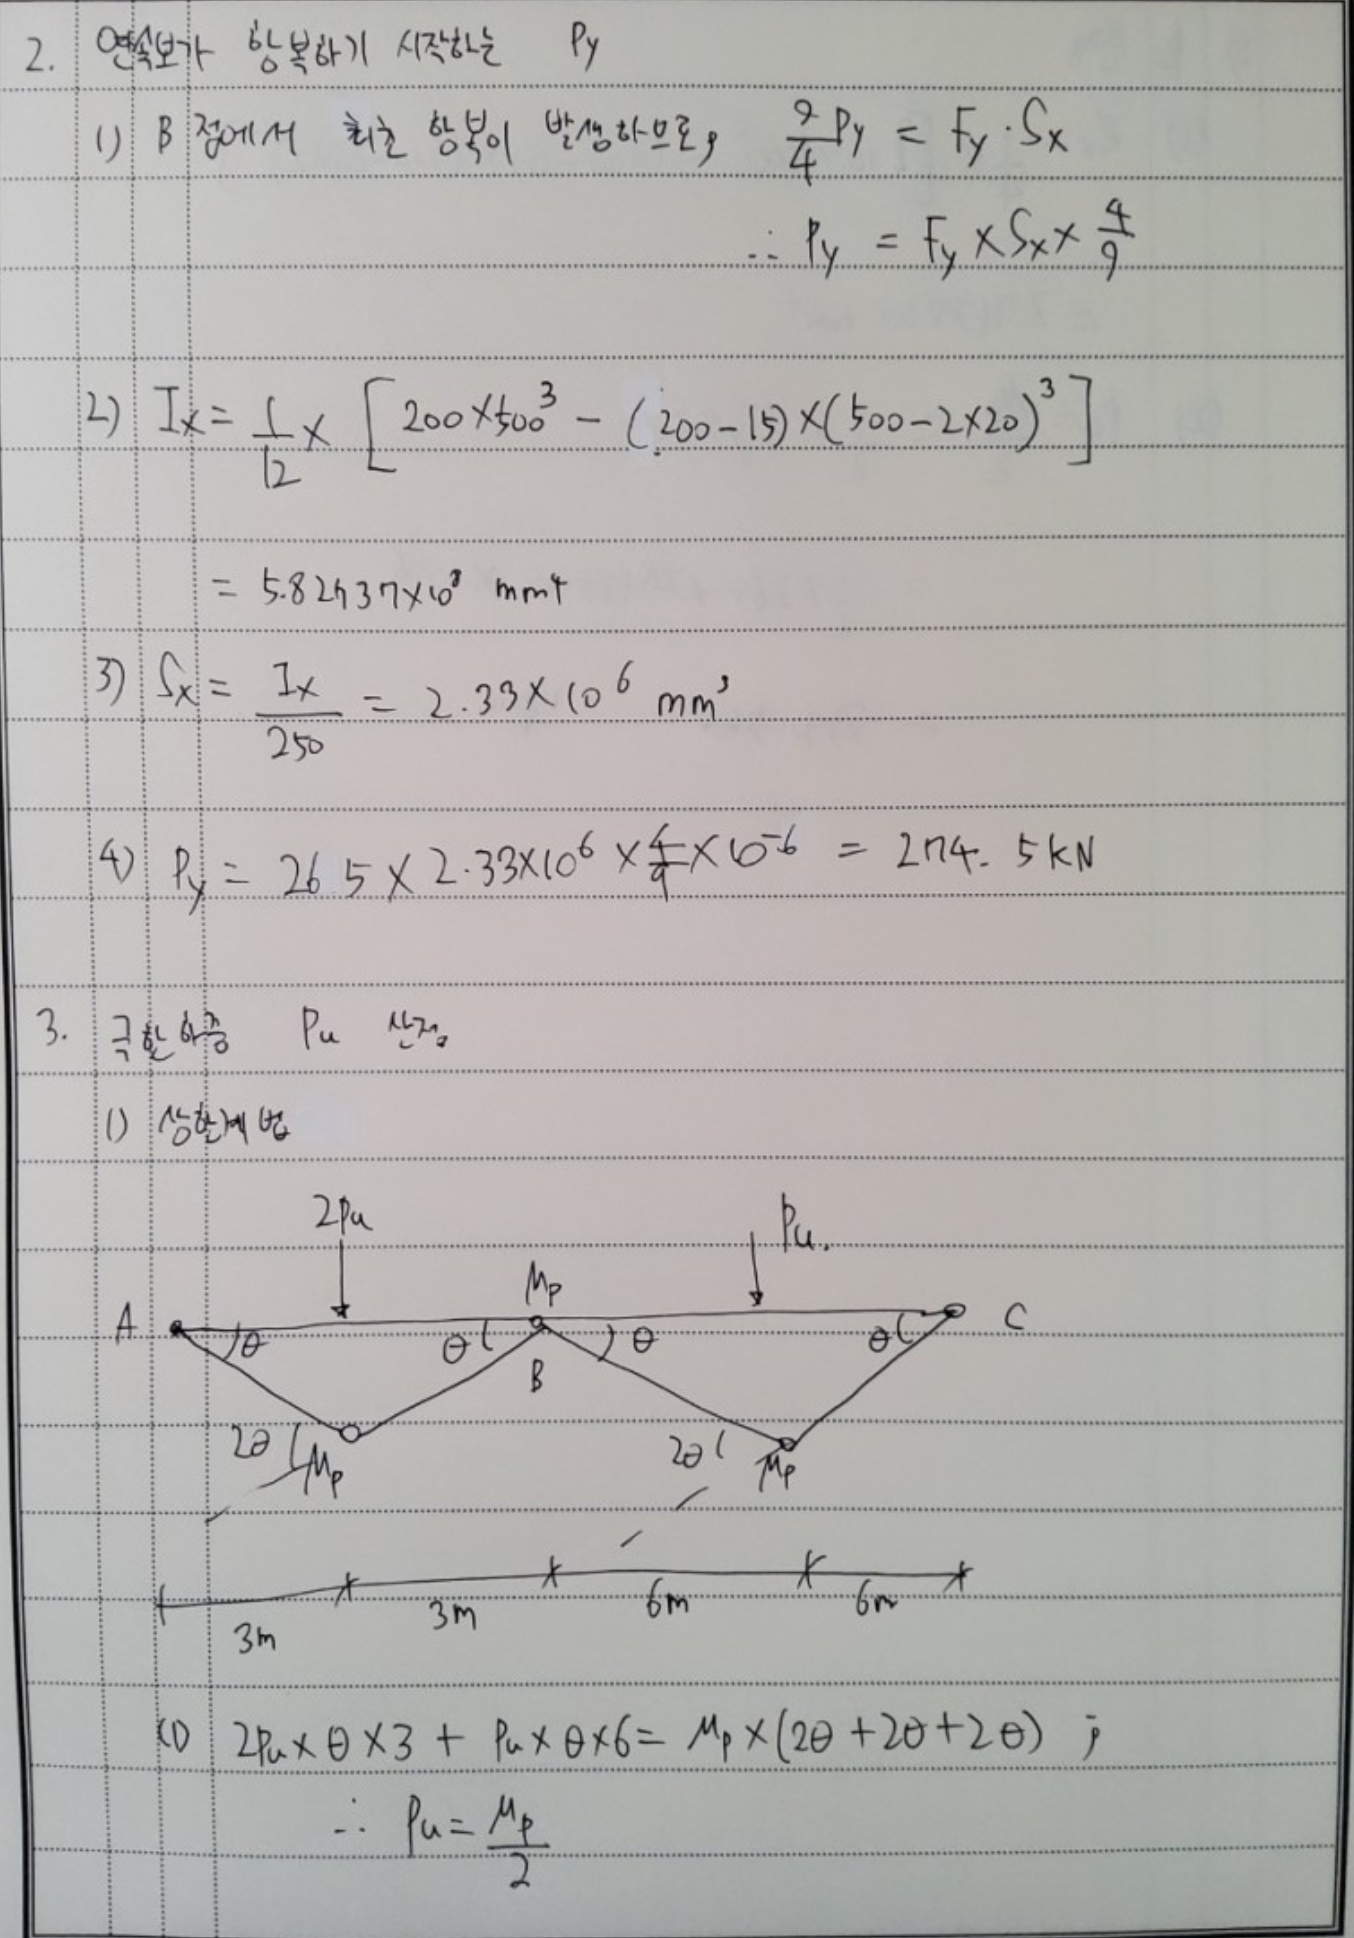 2. 연속보가 항복하기 시작하는 Py
1) B 점에서 최초 항복이 발생하므로, 9/4 Py = Fy · Sx
∴ Py = Fy × Sx × 4/9
2) Ix = 1/12 × [200×500³ - (200-15)×(500-2×20)³]
= 5.82737×10⁸ mm⁴
3) Sx = Ix/250 = 2.33×10⁶ mm³
4) Py = 265 × 2.33×10⁶ × 4/9 × 10⁻⁶ = 274.5 kN
3. 극한하중 Pu 산정
1) 상한계법
2Pu Pu.
Mp
A θ θ B θ θ C
2θ Mp 2θ Mp
3m 3m 6m 6m
(1) 2Pu × θ × 3 + Pu × θ × 6 = Mp × (2θ + 2θ + 2θ) ;
∴ Pu = Mp/2